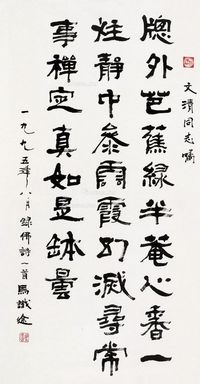 文清同志嘱
牕外芭蕉綠半菴心香一
炷靜中參雲霞幻滅尋常
事禪定真如是鉢曇
一九九五年八月錄佛詩一首馬識途